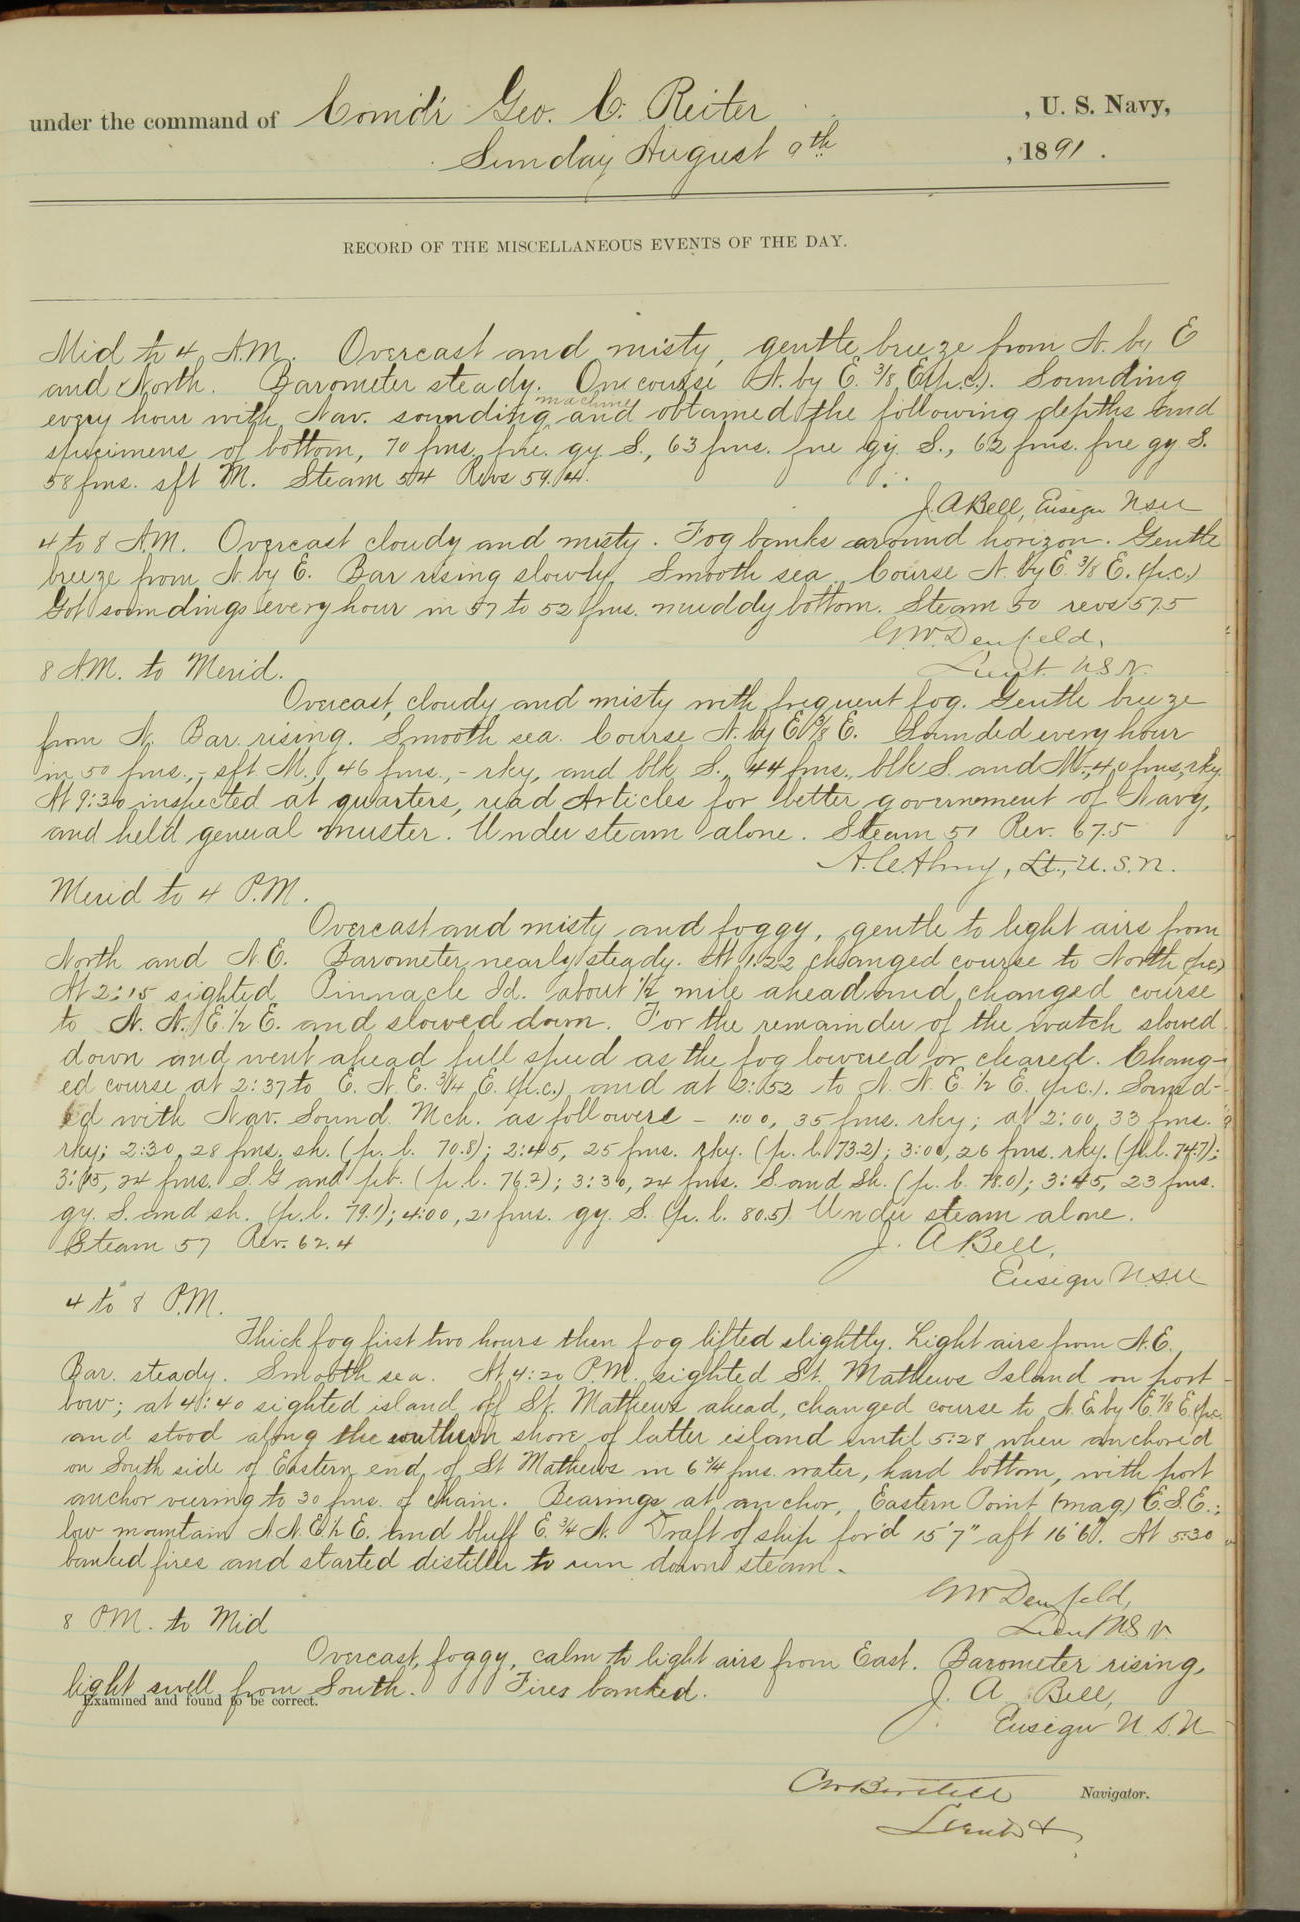 under the command of Comd'r Geo. C. Reiter , U. S. Navy,
Sunday August 9th , 1891 .
RECORD OF THE MISCELLANEOUS EVENTS OF THE DAY.
Mid to 4 A.M. Overcast and misty, gentle breeze from N. by E
and North. Barometer steady. On course N. by E. 3/8 E (p.c.). Sounding
every hour with Nav. sounding machine and obtained the following depths and
specimens of bottom, 70 fms. fne. gy S., 63 fms. fne gy. S., 62 fms. fne gy S.
58 fms. sft M. Steam 54 Revs 59.4.
J. A Bell, Ensign USN
4 to 8 A.M. Overcast cloudy and misty. Fog banks around horizon. Gentle
breeze from N. by E. Bar rising slowly. Smooth sea. Course N. by E. 3/8 E. (p.c.)
Got soundings every hour in 57 to 52 fms. muddy bottom. Steam 50 revs 57.5
G.W. Denfeld,
Lieut. U.S.N.
8 A.M. to Merid.
Overcast, cloudy and misty with frequent fog. Gentle breeze
from N. Bar. rising. Smooth sea. Course N. by E 3/8 E. Sounded every hour
in 50 fms., - sft M., 46 fms., - rky, and blk S., 44 fms., blk S. and M-, 40 fms, rky.
At 9:30 inspected at quarters, read Articles for better government of Navy,
and held general muster. Under steam alone. Steam 51 Rev. 67.5
A. C. Almy, Lt., U.S.N.
Merid to 4 P.M.
Overcast and misty and foggy, gentle to light airs from
North and N.E. Barometer nearly steady. At 1:22 changed course to North (p.c)
At 2:15 sighted Pinnacle Id. about 1/2 mile ahead and changed course
to N. N. E. 1/2 E. and slowed down. For the remainder of the watch slowed
down and went ahead full speed as the fog lowered or cleared. Chang-
ed course at 2:37 to E. N. E. 3/4 E. (p.c.) and at 2:52 to N. N. E. 1/2 E. (p.c.). Sound-
ed with Nav. Sound. Mch. as followers - 1:00, 35 fms. rky; at 2:00, 33 fms.
rky; 2:30, 28 fms. sh. (p. l. 70.8); 2:45, 25 fms. rky. (p. l. 73.2); 3:00, 26 fms. rky. (p.l. 74.7);
3:15, 24 fms. S. G and pb. (p.l. 76.2); 3:30, 24 fms. S. and Sh. (p. l. 78.0); 3:45, 23 fms.
gy. S. and sh. (p.l. 79.1); 4:00, 21 fms. gy. S. (p. l. 80.5) Under steam alone.
Steam 57 Rev. 62.4
J. A Bell,
Ensign U.S.N
4 to 8 P.M.
Thick fog first two hours then fog lifted slightly. Light airs from N.E.
Bar. steady. Smooth sea. At 4:20 P.M. sighted St. Mathews Island on port
bow; at 4:40 sighted island off St. Mathews ahead, changed course to N. E by E 7/8 E. (p.c.
and stood along the southern shore of latter island until 5:28 when anchored
on South side of Eastern end of St Mathews in 6 3/4 fms. water, hard bottom, with port
anchor veering to 30 fms. of chain. Bearings at anchor, Eastern Point (mag.) E.S.E.;
low mountain N.N.E 1/2 E. and bluff E. 3/4 N. Draft of ship for'd 15'7" aft 16'6". At 5:30
banked fires and started distiller to run down steam.
G.W Denfeld,
Lieut U.S N.
8 P.M. to Mid
Overcast, foggy, calm to light airs from East. Barometer rising,
light swell from South. Fires banked.
J. A Bell,
Ensign U.S.N
Examined and found to be correct.
Navigator.
Lieut